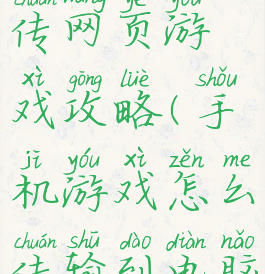 chuán wǎng yè yóu
传网页游
xì gōng lüè shǒu
戏攻略(手
jī yóu xì zěn me
机游戏怎么
chuán shū dào diàn nǎo
传输到电脑